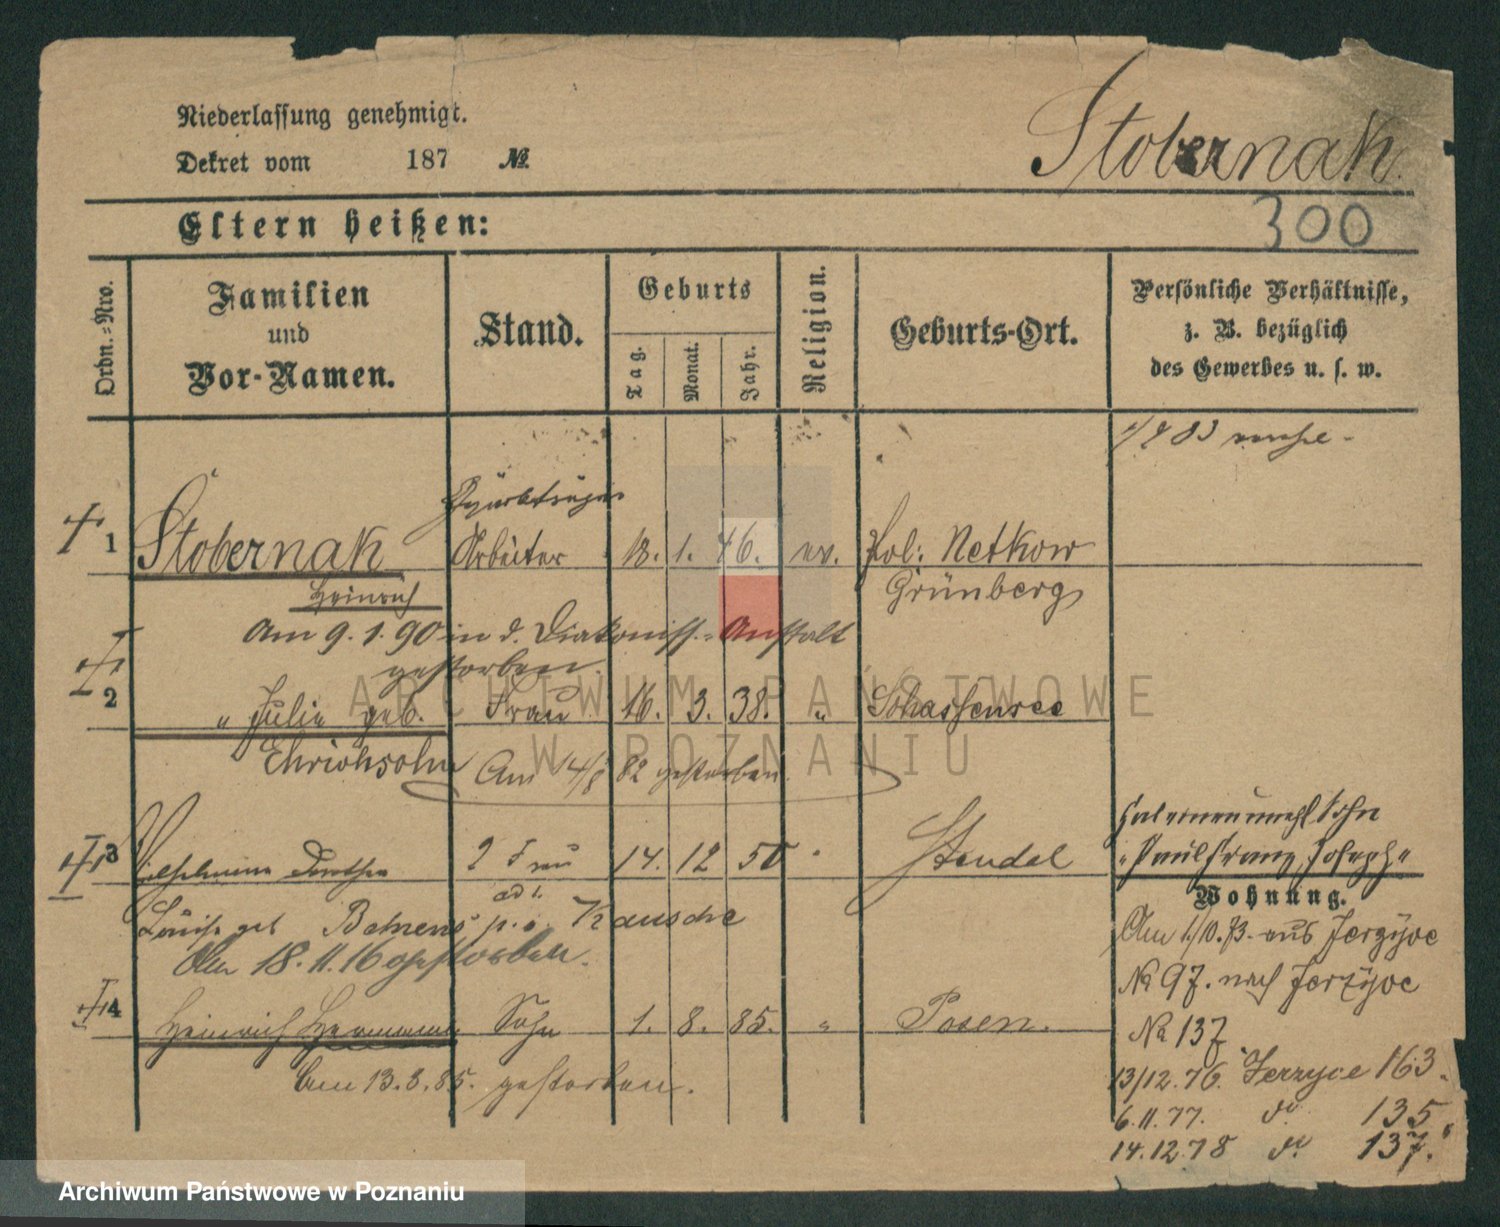 Niederlassung genehmigt.
Dekret vom 187 №
Stobernak.
Eltern heißen:
300
Ordn.=Nro.
Familien
und
Vor-Namen.
Stand.
Geburts
Tag.
Monat.
Jahr.
Religion.
Geburts-Ort.
Persönliche Verhältnisse,
z. B. bezüglich
des Gewerbes u. s. w.
1 Stobernak Arbeiter 18. 1. 46. ev. Pol: Netkow
Heinrich Grünberg
Am 9. 1. 90 in d. Diakoniss.-Anstalt
gestorben.
2 " Julie geb. Frau 16. 3. 38. "
Ehrichsohn Am 14/8 82 gestorben.
3 Wilhelmine Dorothea 2 Frau 14. 12 50 " Stendal
Sohn
"Paul Franz Joseph"
Louise geb Behrens
Am 18. 11. 16 gestorben.
4 Heinrich Hermann Sohn 1. 8. 85. " Posen.
Am 13. 8. 85. gestorben.
Wohnung.
Am 1/10. 73. aus Jerzyce
No 97. nach Jerzyce
No 137
13/12. 76. Jerzyce 163.
6. 11. 77. do 135
14. 12. 78 do 137.
ARCHIWUM PAŃSTWOWE
W POZNANIU
Archiwum Państwowe w Poznaniu